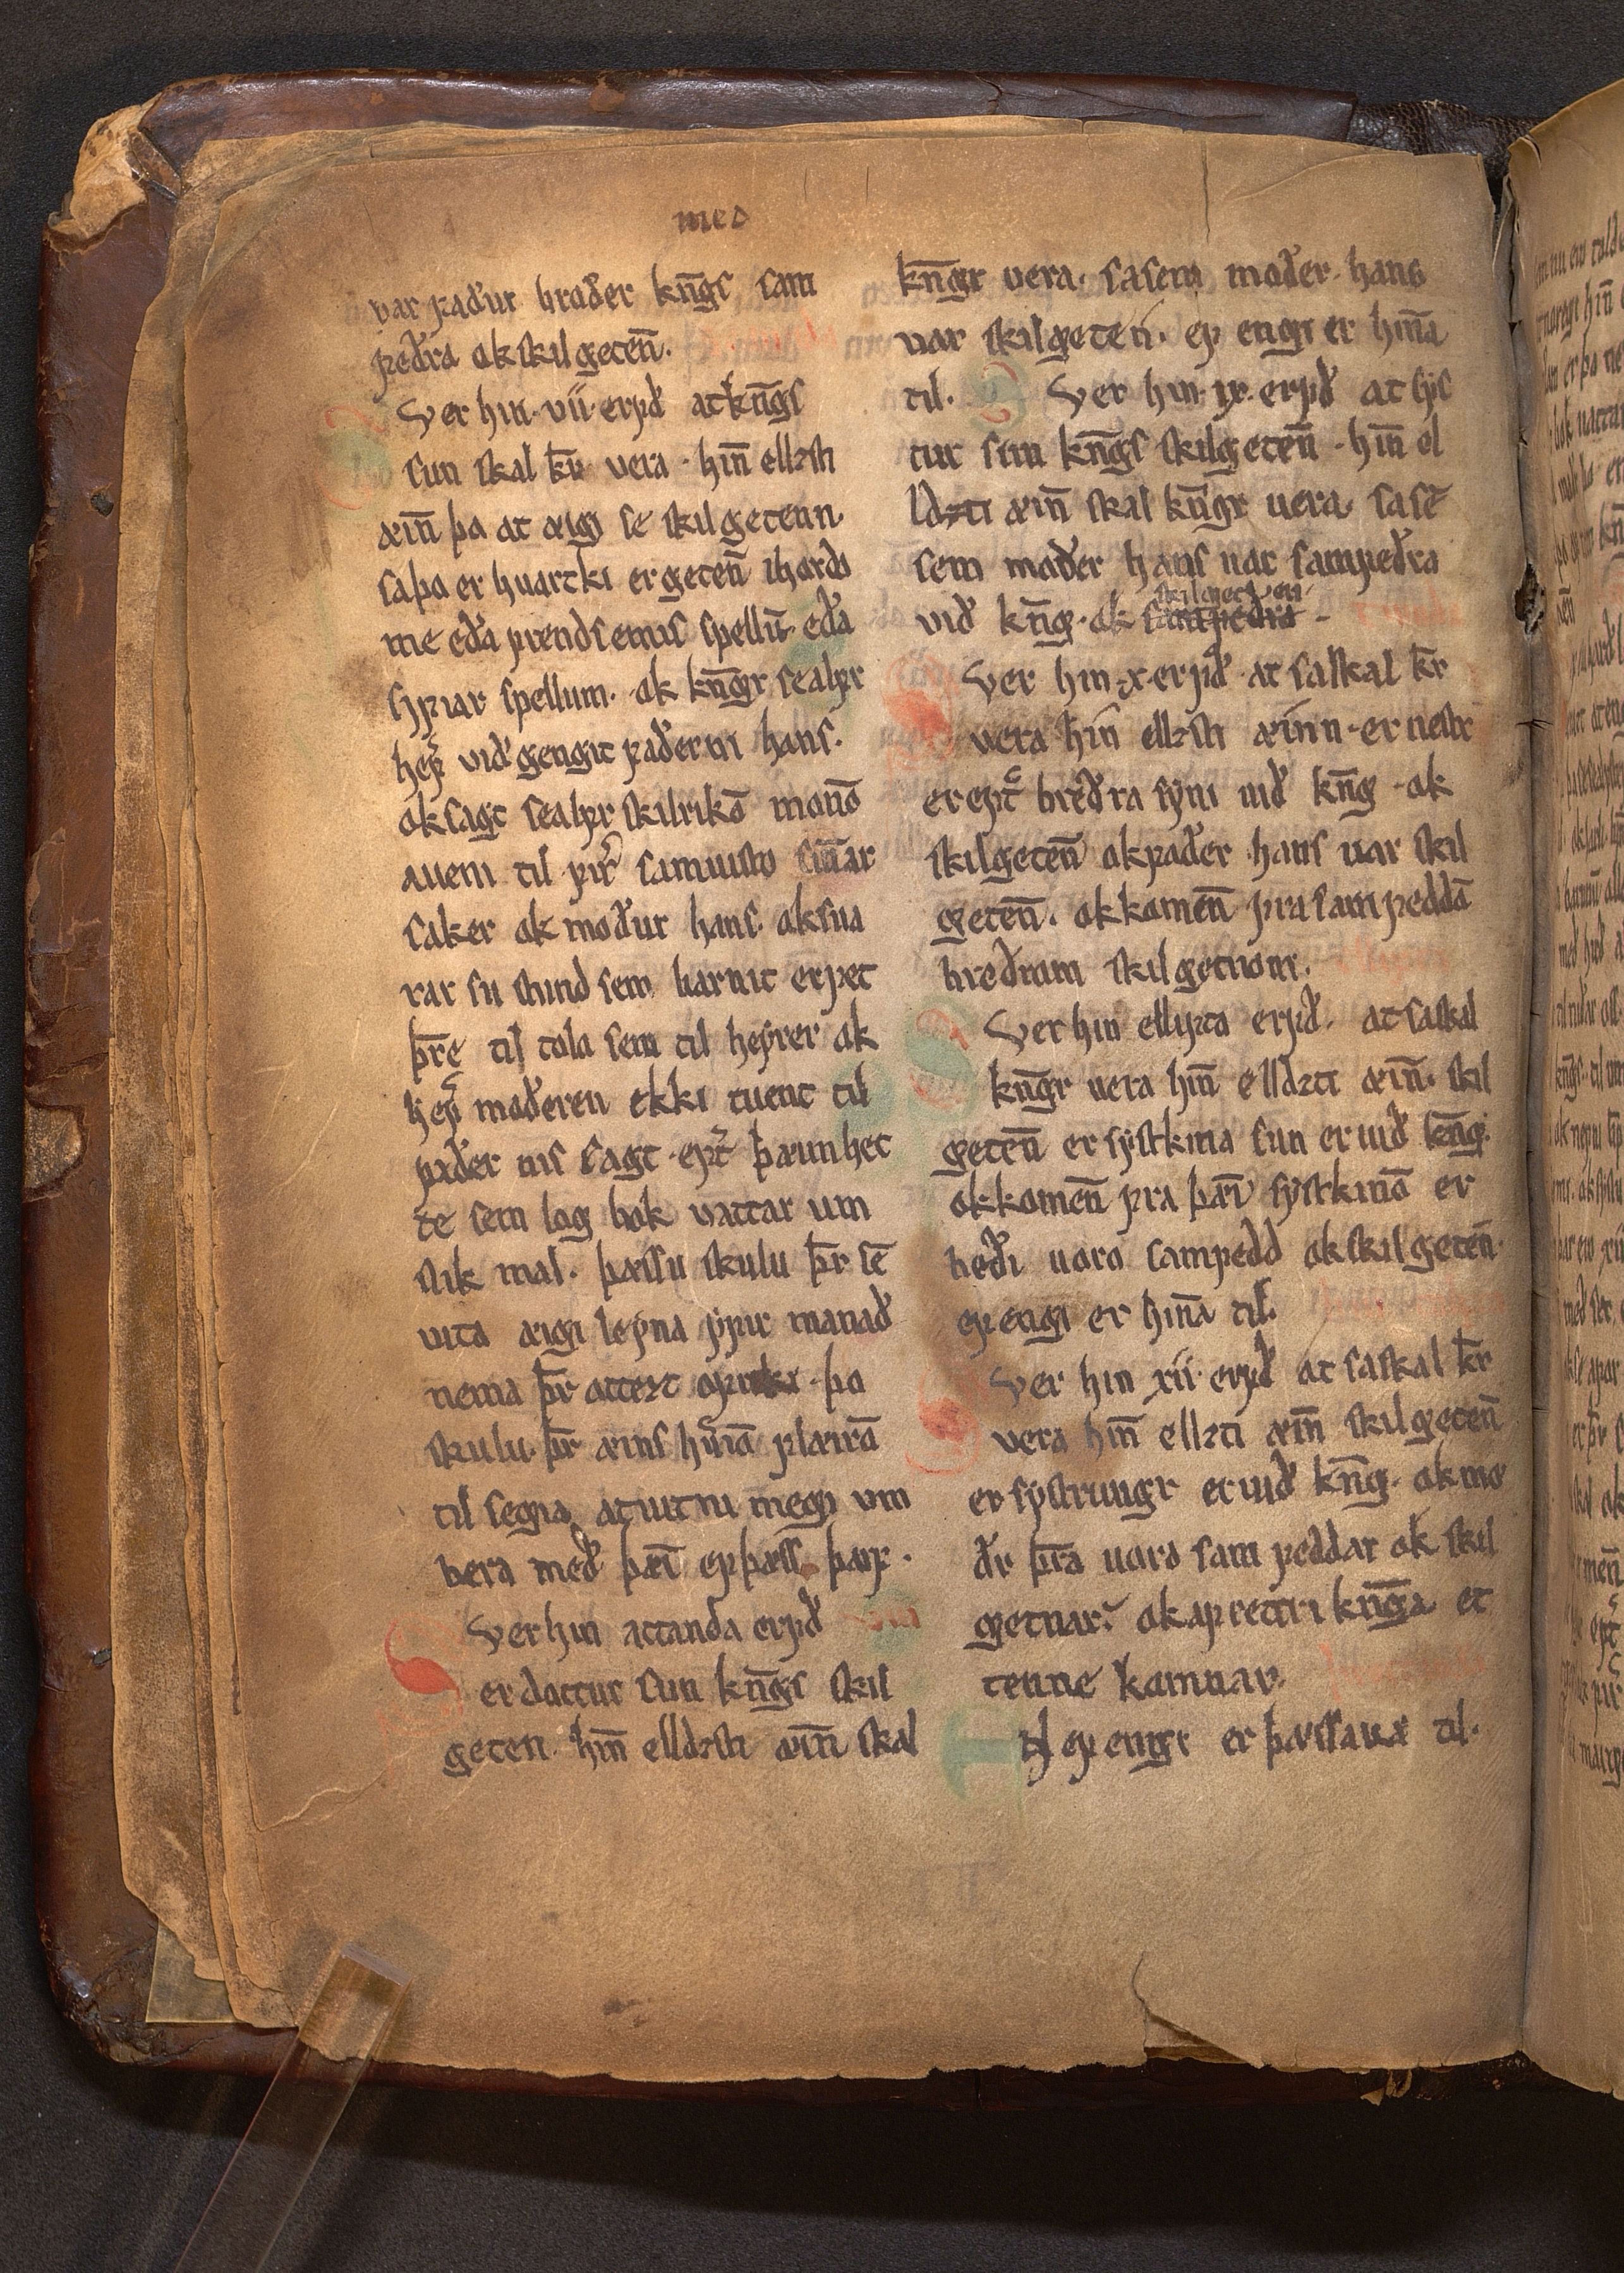 með
var faður broðer kn̄gs sam
feðra ok skilgeten̄.
Sver hin vii erfð at kn̄gs
sun skal kr̄ vera hin̄ ellzsti
æin̄ þo at æigi se skilgetenn
sa þo er huartki er geten̄ i hordo
me eða frendsemis spellū eða
sifiar spellum ok kn̄gr sealfr
hef̉ við gengit faðerni hans
ok sagt sealfr skilrikō monō
a uem til fir̉ samuisto sin̄ar
saker ok moður hans ok sua
rar su stund sem barnit er fet
þr̄e til tola sem til heyrer ok
hef̉ moðeren ekki tuent til
faðer nis sagt eft̉ þæim het
te sem log bok vattar um
slik mal. þæssu skulu þr̄ sē
vita æigi leyna yfir manað
nema þr̄ attezt þo
skulu þr̄ æins huia flæirā
til segia at uitni megi vm
bera með þæī ef þæss þarf
Sver hin attanda erfð
er dottur sun kn̄gs skil
geten hin̄ elldzsti æin̄ skal
kn̄gr vera sa sem moðer hans
uar skilgeten. ef engi er hin̄a
til. Sver hin ix erfð at sys
tur sun kn̄gs skilgeten̄ hin̄ el
ldzti æin̄ skal kn̄gr uera sa sē
sem moðer hans uar samfeðra
skilgeten
við kn̄g ok samfeðra
Sver hin x erfð at sa skal kr̄
vera hin ellzsti æinn er nestr
er eft̉ breðra syni uið kn̄g ok
skilgeten̄ ok faðer hans uar skil
geten̄. ok komen̄ fra sam feddā
breðrum skilgetnom.
Sver hin ellyfta erfð. at sa skal
kn̄gr uera hin̄ elldzti æin̄. skil
geten̄ er systkina sun er uið kn̄g.
ok komen̄ fra þæī systkinō er
beði uoro samfedd ok skilgeten̄
ef engi er hin̄a til.
Sver hin xii erfð at sa skal kr̄
vera hin̄ ellzti æin̄ skilgeten̄
er systrungr er uið kn̄g. ok mo
ðr þr̄a uoro sam feddar ok skil
getnar ok af rettri kn̄ga et
tenne komnar.
N ef engi er þæssara til.